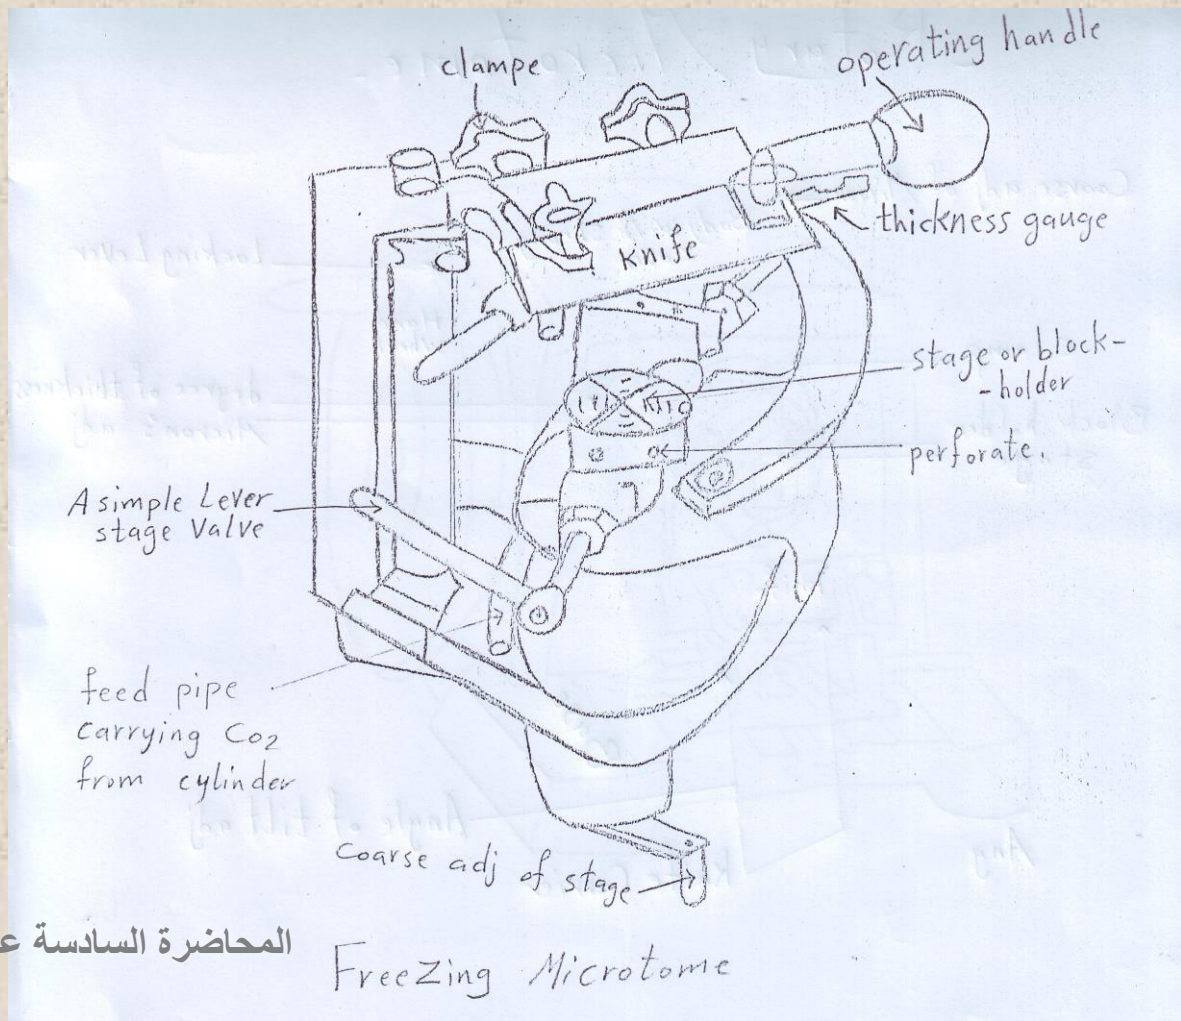 clampe
operating handle
thickness gauge
Knife
stage or block-
-holder
perforate.
A simple Lever
stage Valve
feed pipe
carrying Co2
from cylinder
Coarse adj of stage
المحاضرة السادسة
Freezing Microtome